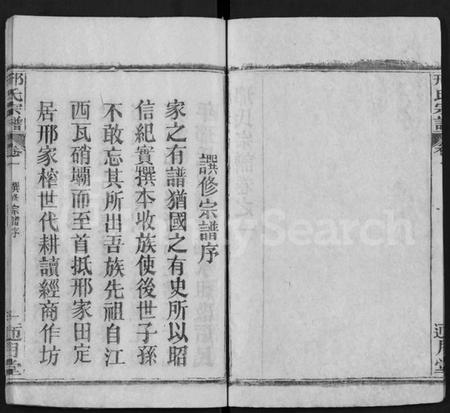 譔修宗譜序
家之有譜猶國之有史所以昭
信紀實撰本收族使後世子孫
不敢忘其所出吾族先祖自江
西瓦硝壩而至首抵邢家田定
居邢家榨世代耕讀經商作坊
邢氏宗譜
卷一
譔修宗譜序
一
邢氏宗譜
卷
FamilySearch